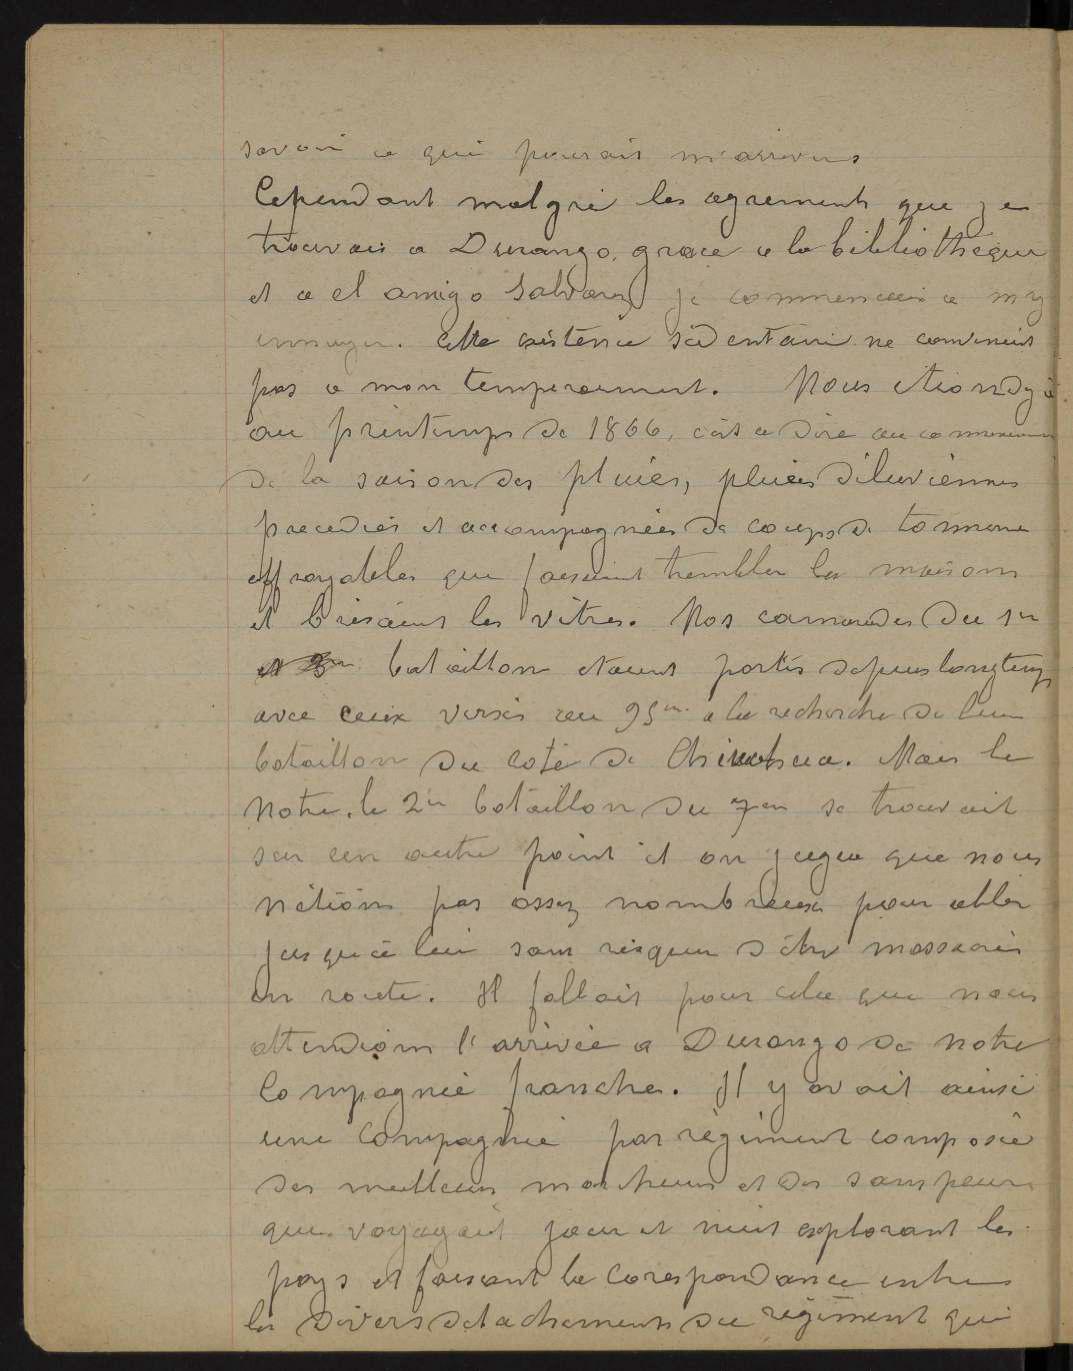 savoir ce qui pourais m'arriver
Cependant malgré les agrements que je
trouvais a Durango, grace a la bibliothéque
et a el amigo Salvarez je commencais a my
ennuyer. Cette existence sédentaire ne convenait
pas a mon temperament. Nous étions déjà
au printemps de 1866, cést a dire au commencement
de la saison des pluies, pluies diluviénnes
precedées et accompagnées de coups de tonnerre
effroyables que faisaient trembler les maisons
et brisaient les vitres. Nos camarades du 1er
bataillon etaient partis depuis longtemps
avec ceux versés au 95me a la recherche de leur
bataillon du coté de Chihuahua. Mais le
notre, le 2me bataillon du 7me se trouvait
sur un autre point et on jugea que nous
nétions pas assez nombreux pour aller
jusqu'a lui sans risquer d'être massacrés
en route. Il fallait pour cela que nous
attendions l'arrivée a Durango de notre
Compagnie franche. Il y avait ainsi
une Compagnie par régiment composée
des meilleurs marcheurs et des sans peur
que voyagait jour et nuit explorant les
pays et faisant la Corespondance entre
les divers detachements du régiment qui